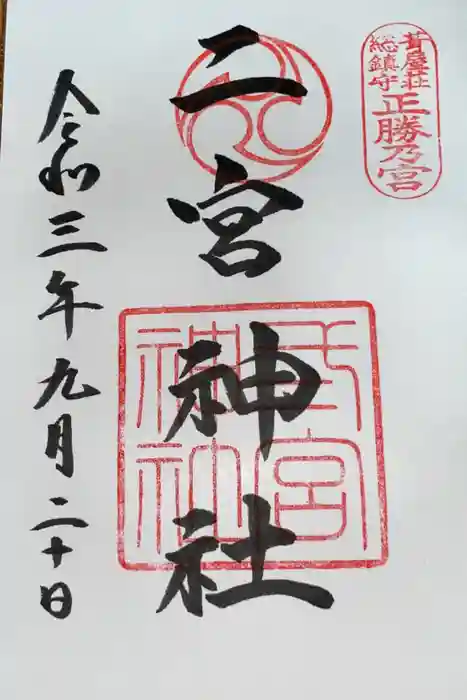 葺屋荘
総鎮守
正勝乃宮
二宮神社
宮
神社
令和三年九月二十日